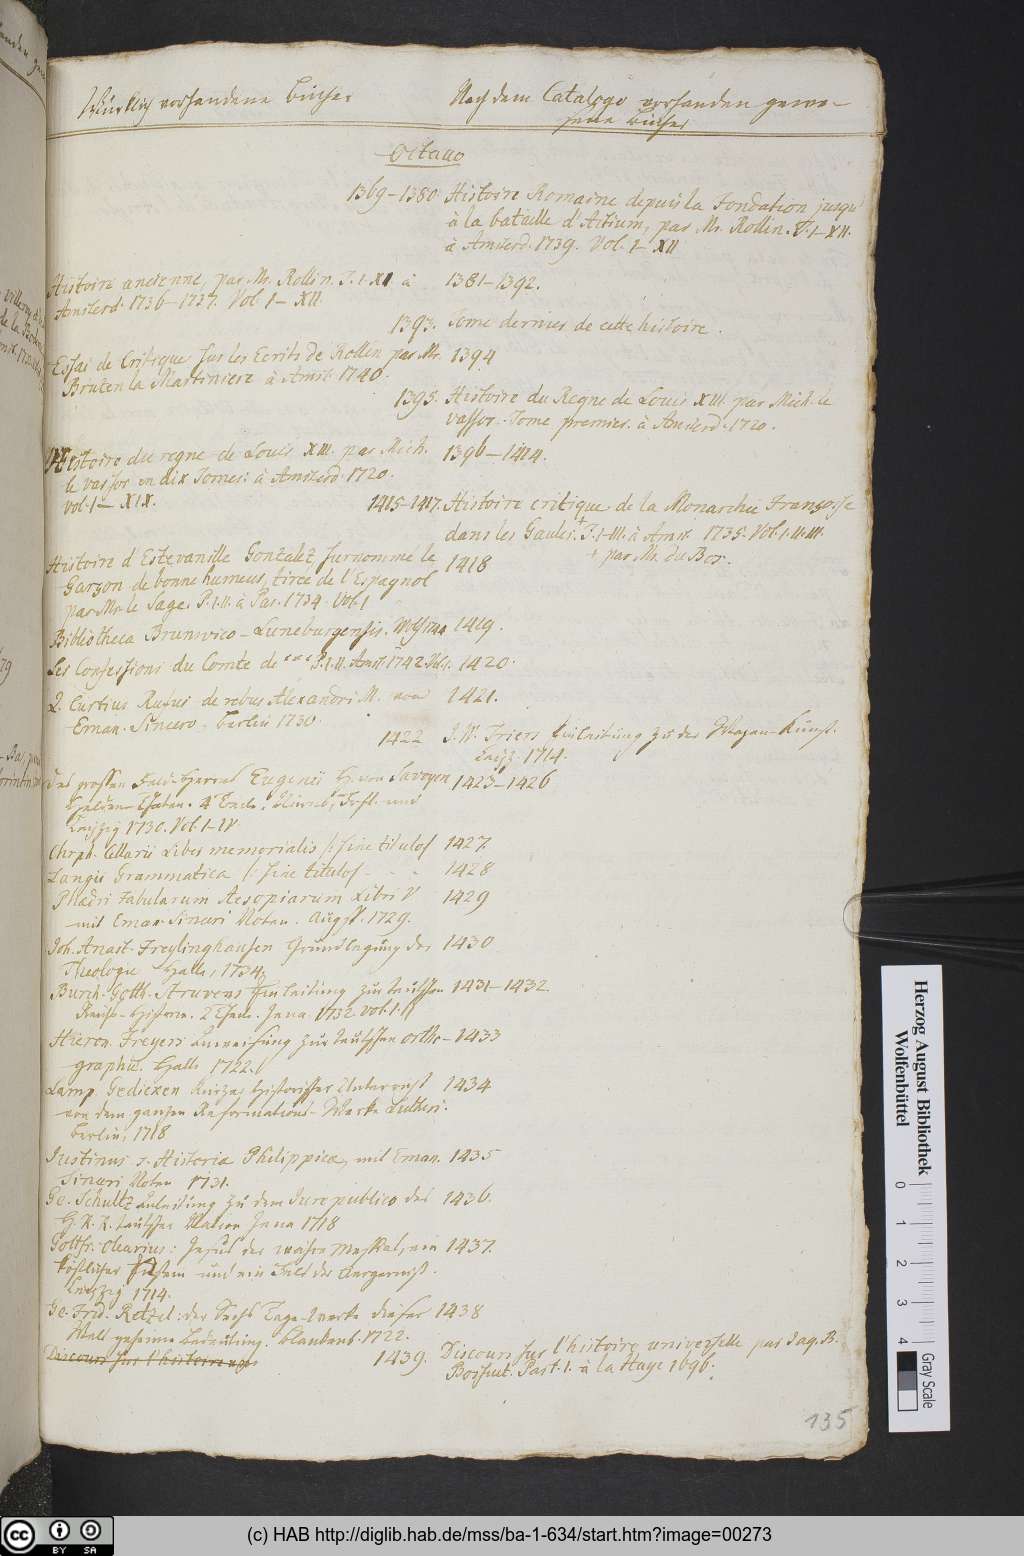 Würklich vorhandene Bücher
Nach dem Catalogo vorhanden gewe-
sene Bücher
Octavo
1369-1380 Histoire Romaine depuis la Fondation jusqu'
à la bataille d'Actium, par Mr. Rollin. T. I-XII.
à Amsterd. 1739. Vol. I-XII
Histoire ancienne, par Mr. Rollin. T. I-XII à 1381-1392.
Amsterd. 1736-1737. Vol. I-XII.
1393. Tome dernier de cette histoire.
Essai de Critique sur les Ecrits de Rollin par Mr. 1394
Bruzen la Martiniere à Amst. 1740.
1395. Histoire du Regne de Louis XIII. par Mich. le
vassor. Tome premier. à Amsterd. 1720.
Histoire du regne de Louis XIII. par Mich. 1396-1414.
le vassor en dix Tomes: à Amsterd. 1720.
vol. I-XIX.
1415-1417. Histoire critique de la Monarchie Françoise
dans les Gaules. + T. I-III. à Amst. 1735. Vol. I. II. III.
+ par Mr. du Bos.
Histoire d'Estevanille Gonzalez surnommé le 1418
Garçon de bonne humeur, tirée de l'Espagnol
par Mr. le Sage. P. I. II. à Par. 1734. Vol. I
Bibliotheca Brunsvico-Luneburgensis. 1419.
Les Confessions du Comte de *** P. I. II. Amst. 1742. 1420.
Q. Curtius Rufus de rebus Alexandri M. von 1421.
Eman. Sincero. Berlin 1730.
1422 J. W. Triers Einleitung zu der Wapen-Kunst.
Leipz. 1714.
Des grossen Feld-Herrns Eugenii H. von Savoyen 1423-1426
Helden-Thaten. 4 Nürnb., und
Leipzig 1730. Vol. I-IV.
Chrph. Cellarii Liber memorialis /: sine titulo/ 1427.
Langii Grammatica /: sine titulo/ - - - 1428
Phædri Fabularum Aesopiarum Libri V 1429
mit Eman. Sinceri Noten. Augsp. 1729.
Joh. Anast. Freylinghausen Grundlegung der 1430
Theologie Halle, 1734.
Burch. Gotth. Struvens Einleitung zur teutschen 1431-1432.
Reichs-Historie. 2 Theile. Jena 1732. vol. I. II
Hieron. Freyers Anweisung zur teutschen ortho- 1433
graphie. Halle 1722.
Lamp. Gedicken kurzer historischer Unterricht 1434
von dem ganzen Reformations-Wercke Lutheri.
Berlin, 1718
Justinus s. Historiæ Philippicæ, mit Eman. 1435
Sinceri Noten 1731.
Ge. Schultz Anleitung zu dem Jure publico des 1436.
H. R. R. teutscher Nation Jena 1718
Gottfr. Olearius: Jesus der wahre Messias, ein 1437.
köstlicher und ein Fels der Aergerniß.
Leipzig 1714.
Ge. Frid. Retzel: der Sechs Tage-Wercke dieser 1438
Welt geheime Bedeutung. Blanckenb. 1722.
Discours sur l'histoire
1439. Discours sur l'histoire universelle par Jaq. B.
Bossuet. Part. I. à la Haye 1696.
135
Herzog August Bibliothek
Wolfenbüttel
0 1 2 3 4
Gray Scale
cc BY SA
(c) HAB http://diglib.hab.de/mss/ba-1-634/start.htm?image=00273